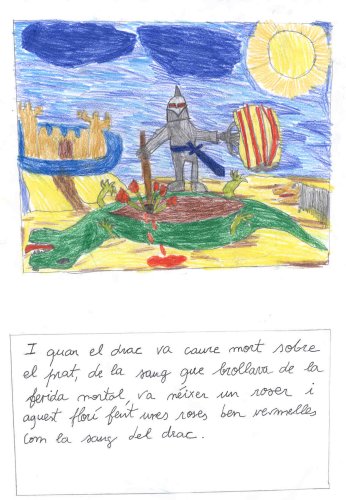 I quan el drac va caure mort sobre
el prat, de la sang que brollava de la
ferida mortal, va néixer un roser i
aquest florí feint unes roses ben vermelles
com la sang del drac.